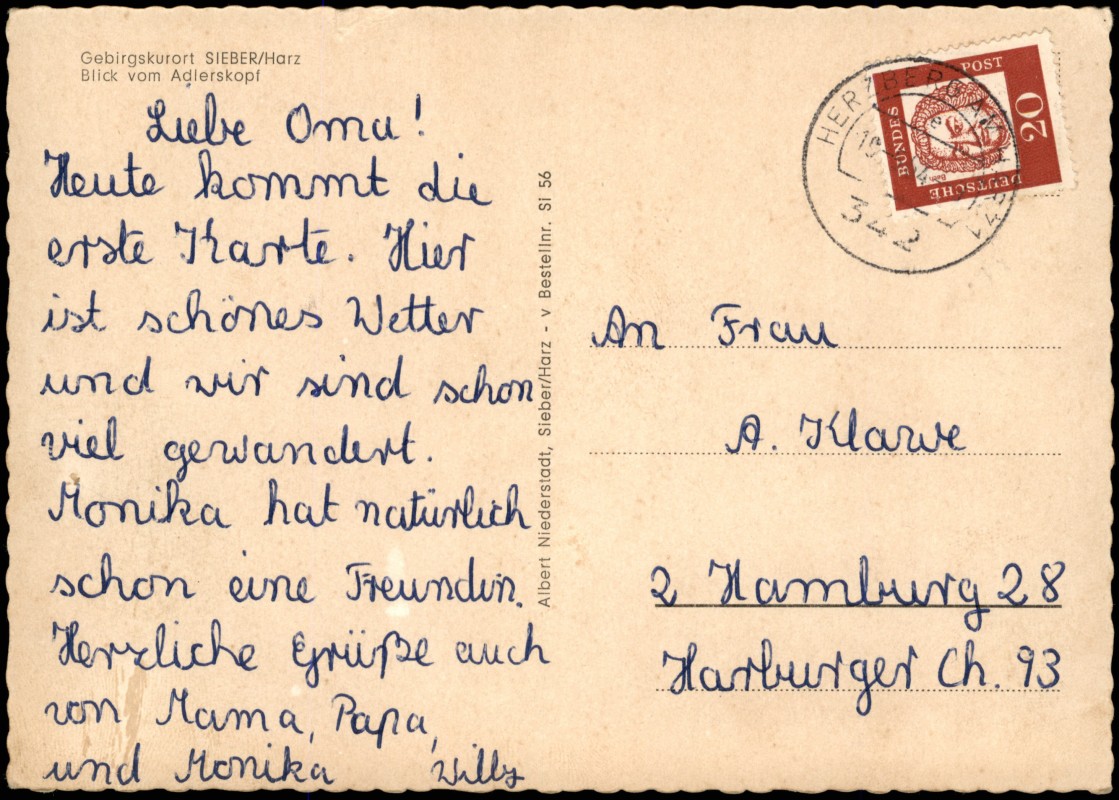 Gebirgskurort SIEBER/Harz
Blick vom Adlerskopf
Liebe Oma!
Heute kommt die
erste Karte. Hier
ist schönes Wetter
und wir sind schon
viel gewandert.
Monika hat natürlich
schon eine Freundin.
Herzliche Grüße auch
von Mama, Papa,
und Monika Willy
Albert Niederstadt, Sieber/Harz - v Bestellnr. Si 56
HERZBERG AM HARZ
342
DEUTSCHE
BUNDES
POST
20
An Frau
A. Klawe
2 Hamburg 28
Harburger Ch. 93